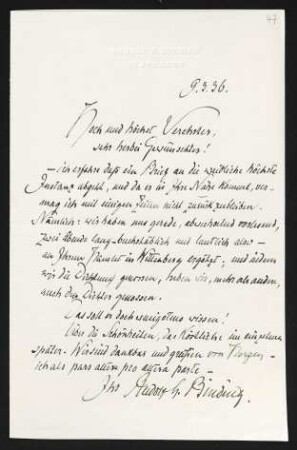 47
9.3.36.
Hoch und höchst Verehrter,
sehr herbei Gewünschter!
– ich erfahre daß ein Brief an die weibliche höchste
Instanz abgeht, und da er in Ihre Nähe kommt, ver-
mag ich mit einigen Zeilen nicht zurückzubleiben.
Nämlich: wir haben uns gerade, abwechselnd vorlesend,
zwei Abende lang – buchstäblich und lautlich also –
an Ihrem                 in Wittenberg ergötzt; und indem
wir die Dichtung genossen, haben wir, mehr als andere,
auch den Dichter genossen.
Das soll er doch wenigstens wissen!
Über die Schönheiten, das Köstliche im einzelnen
später. Wir sind dankbar und grüßen von Herzen –
ich als pars altera pro altera parte –
Ihr Rudolf G. Binding